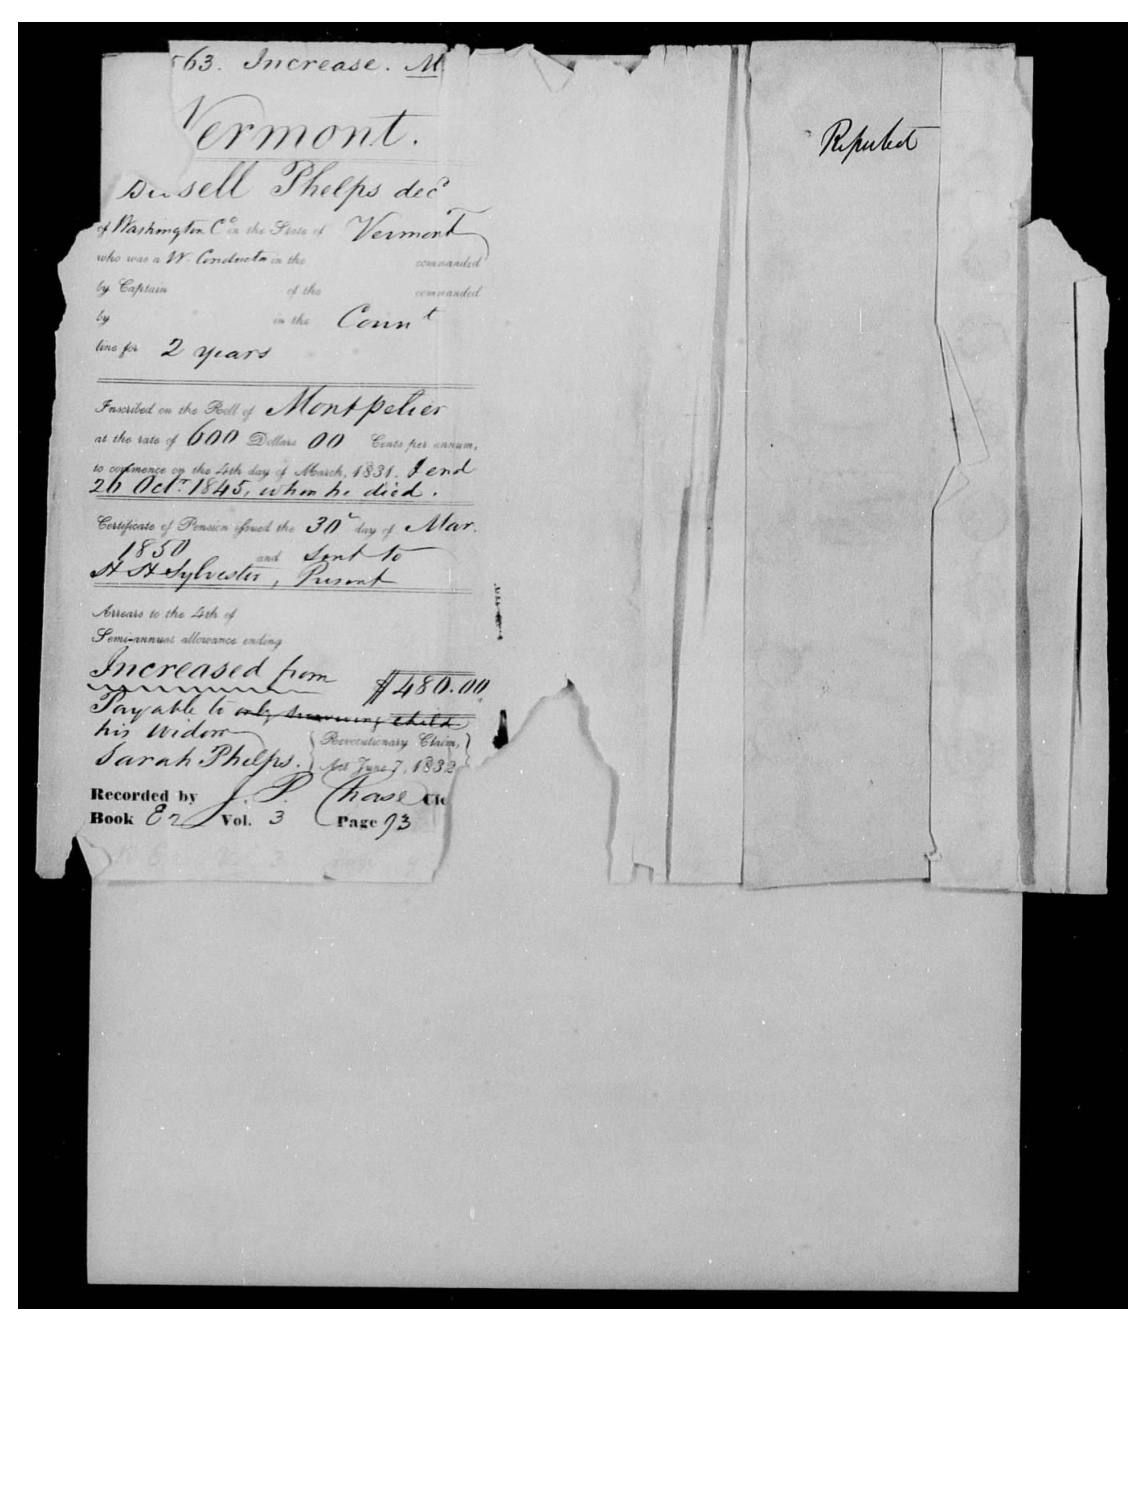 563. Increase. M
Vermont.
Bissell Phelps decd
of Washington Co in the State of Vermont
who was a W. Conductor in the commanded
by Captain of the commanded
by in the Connt
line for 2 years
Inscribed on the Roll of Montpelier
at the rate of 600 Dollars 00 Cents per annum,
to commence on the 4th day of March, 1831. & end
26 Octr. 1845, when he died.
Certificate of Pension issued the 30 day of Mar.
1850 and sent to
H H Sylvester, Present
Arrears to the 4th of
Semi-annual allowance ending
Increased from
$480.00
Payable to only surviving child
his widow
Sarah Phelps.
Revolutionary Claim,
Act June 7, 1832
Recorded by J. P. Chase Cle
Book E2 Vol. 3 Page 93
Reputed